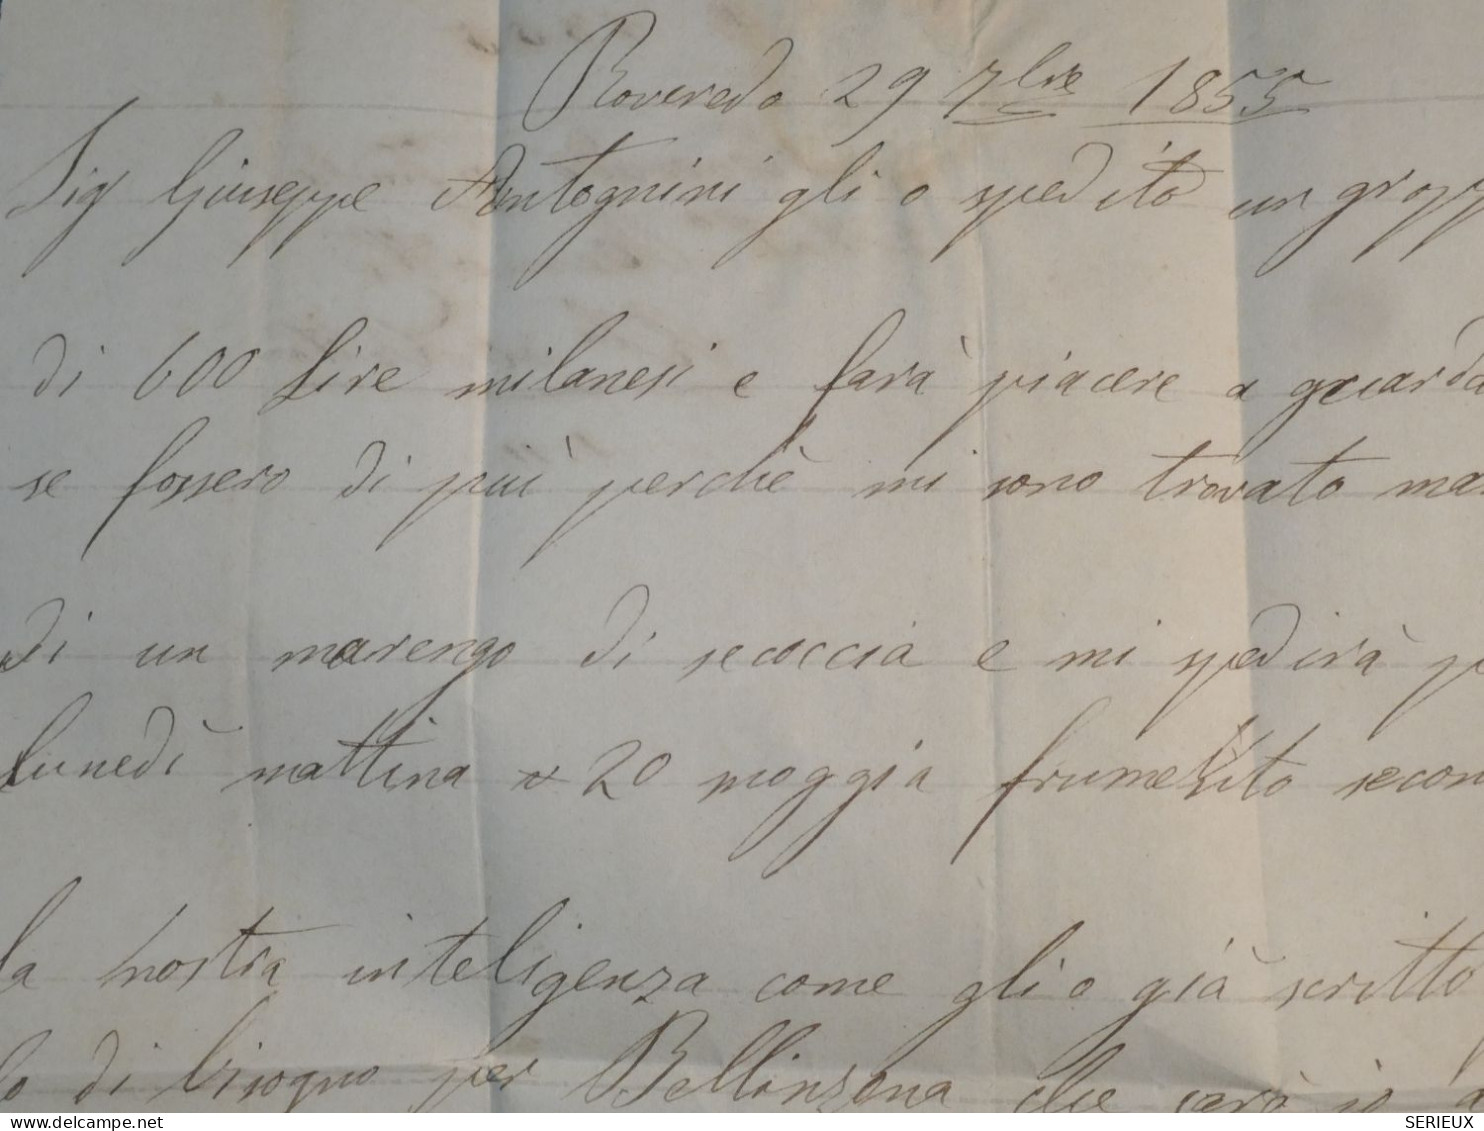 Roveredo 29 7bre 1855
Sig Giuseppe Antognini gli o spedito un gropp
di 600 Lire milanesi e farà piacere a guarda
se fossero di più perchè mi sono trovato ma
di un marengo di secoccia e mi spedirà p
lunedì mattina 20 moggia frumento secon
la nostra inteligenza come gli o già scritto
lo di bisogno per Bellinzona che sarò io a
SERIEUX